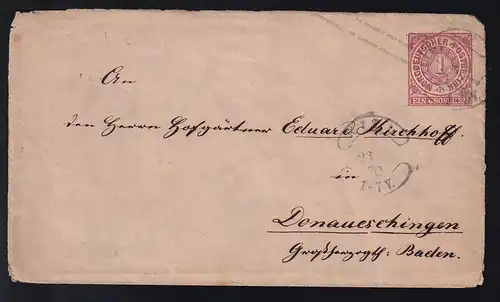 NORDDEUTSCHER POSTBEZIRK
1
EIN GROSCHEN
An
den Herrn Hofgärtner Eduard Kirchhoff
23
70
in
Donaueschingen
Großherzogth: Baden.